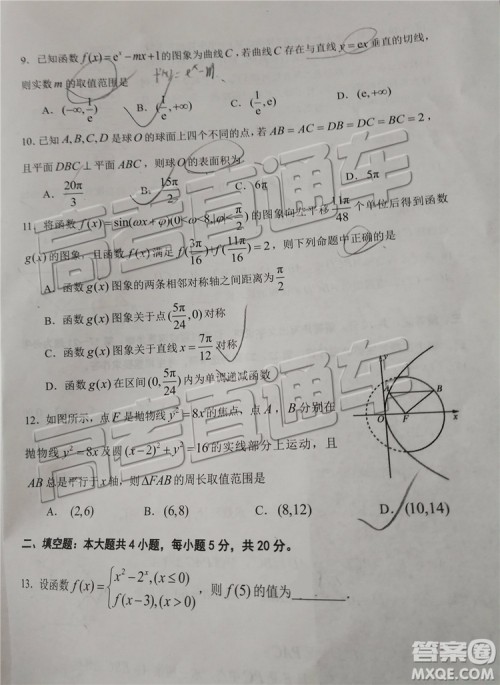 9. 已知函数 f(x)=eˣ-mx+1的图象为曲线C, 若曲线C存在与直线 y=ex 垂直的切线,
则实数 m 的取值范围是
f'(x)=eˣ-m
A. (-∞,1/e) B. (1/e,+∞) C. (1/e,e) D. (e,+∞)
10. 已知 A,B,C,D 是球O的球面上四个不同的点, 若 AB=AC=DB=DC=BC=2,
且平面 DBC⊥平面 ABC, 则球O的表面积为
A. 20π/3 B. 15π/2 C. 6π D. 5π
11. 将函数 f(x)=sin(ωx+φ)(0<ω<8,|φ|<π/2) 的图象向上平移 11π/48 个单位后得到函数
g(x) 的图象, 且函数 f(x) 满足 f(3π/16)-f(11π/16)=2, 则下列命题中正确的是
A. 函数 g(x) 图象的两条相邻对称轴之间距离为 π/2
B. 函数 g(x) 图象关于点 (5π/24,0) 对称
C. 函数 g(x) 图象关于直线 x=7π/12 对称
D. 函数 g(x) 在区间 (0,5π/24) 内为单调递减函数
12. 如图所示, 点 F 是抛物线 y²=8x 的焦点, 点 A, B 分别在
抛物线 y²=8x 及圆 (x-2)²+y²=16 的实线部分上运动, 且
AB 总是平行于 x 轴, 则ΔFAB 的周长取值范围是
y
A
B
O
F
x
A. (2,6) B. (6,8) C. (8,12) D. (10,14)
二、填空题: 本大题共 4 小题, 每小题 5 分, 共 20 分。
13. 设函数 f(x)={x²-2ˣ,(x≤0) f(x-3),(x>0), 则 f(5) 的值为______.
高考直通车
高考直通车
答案圈
MXQE.COM